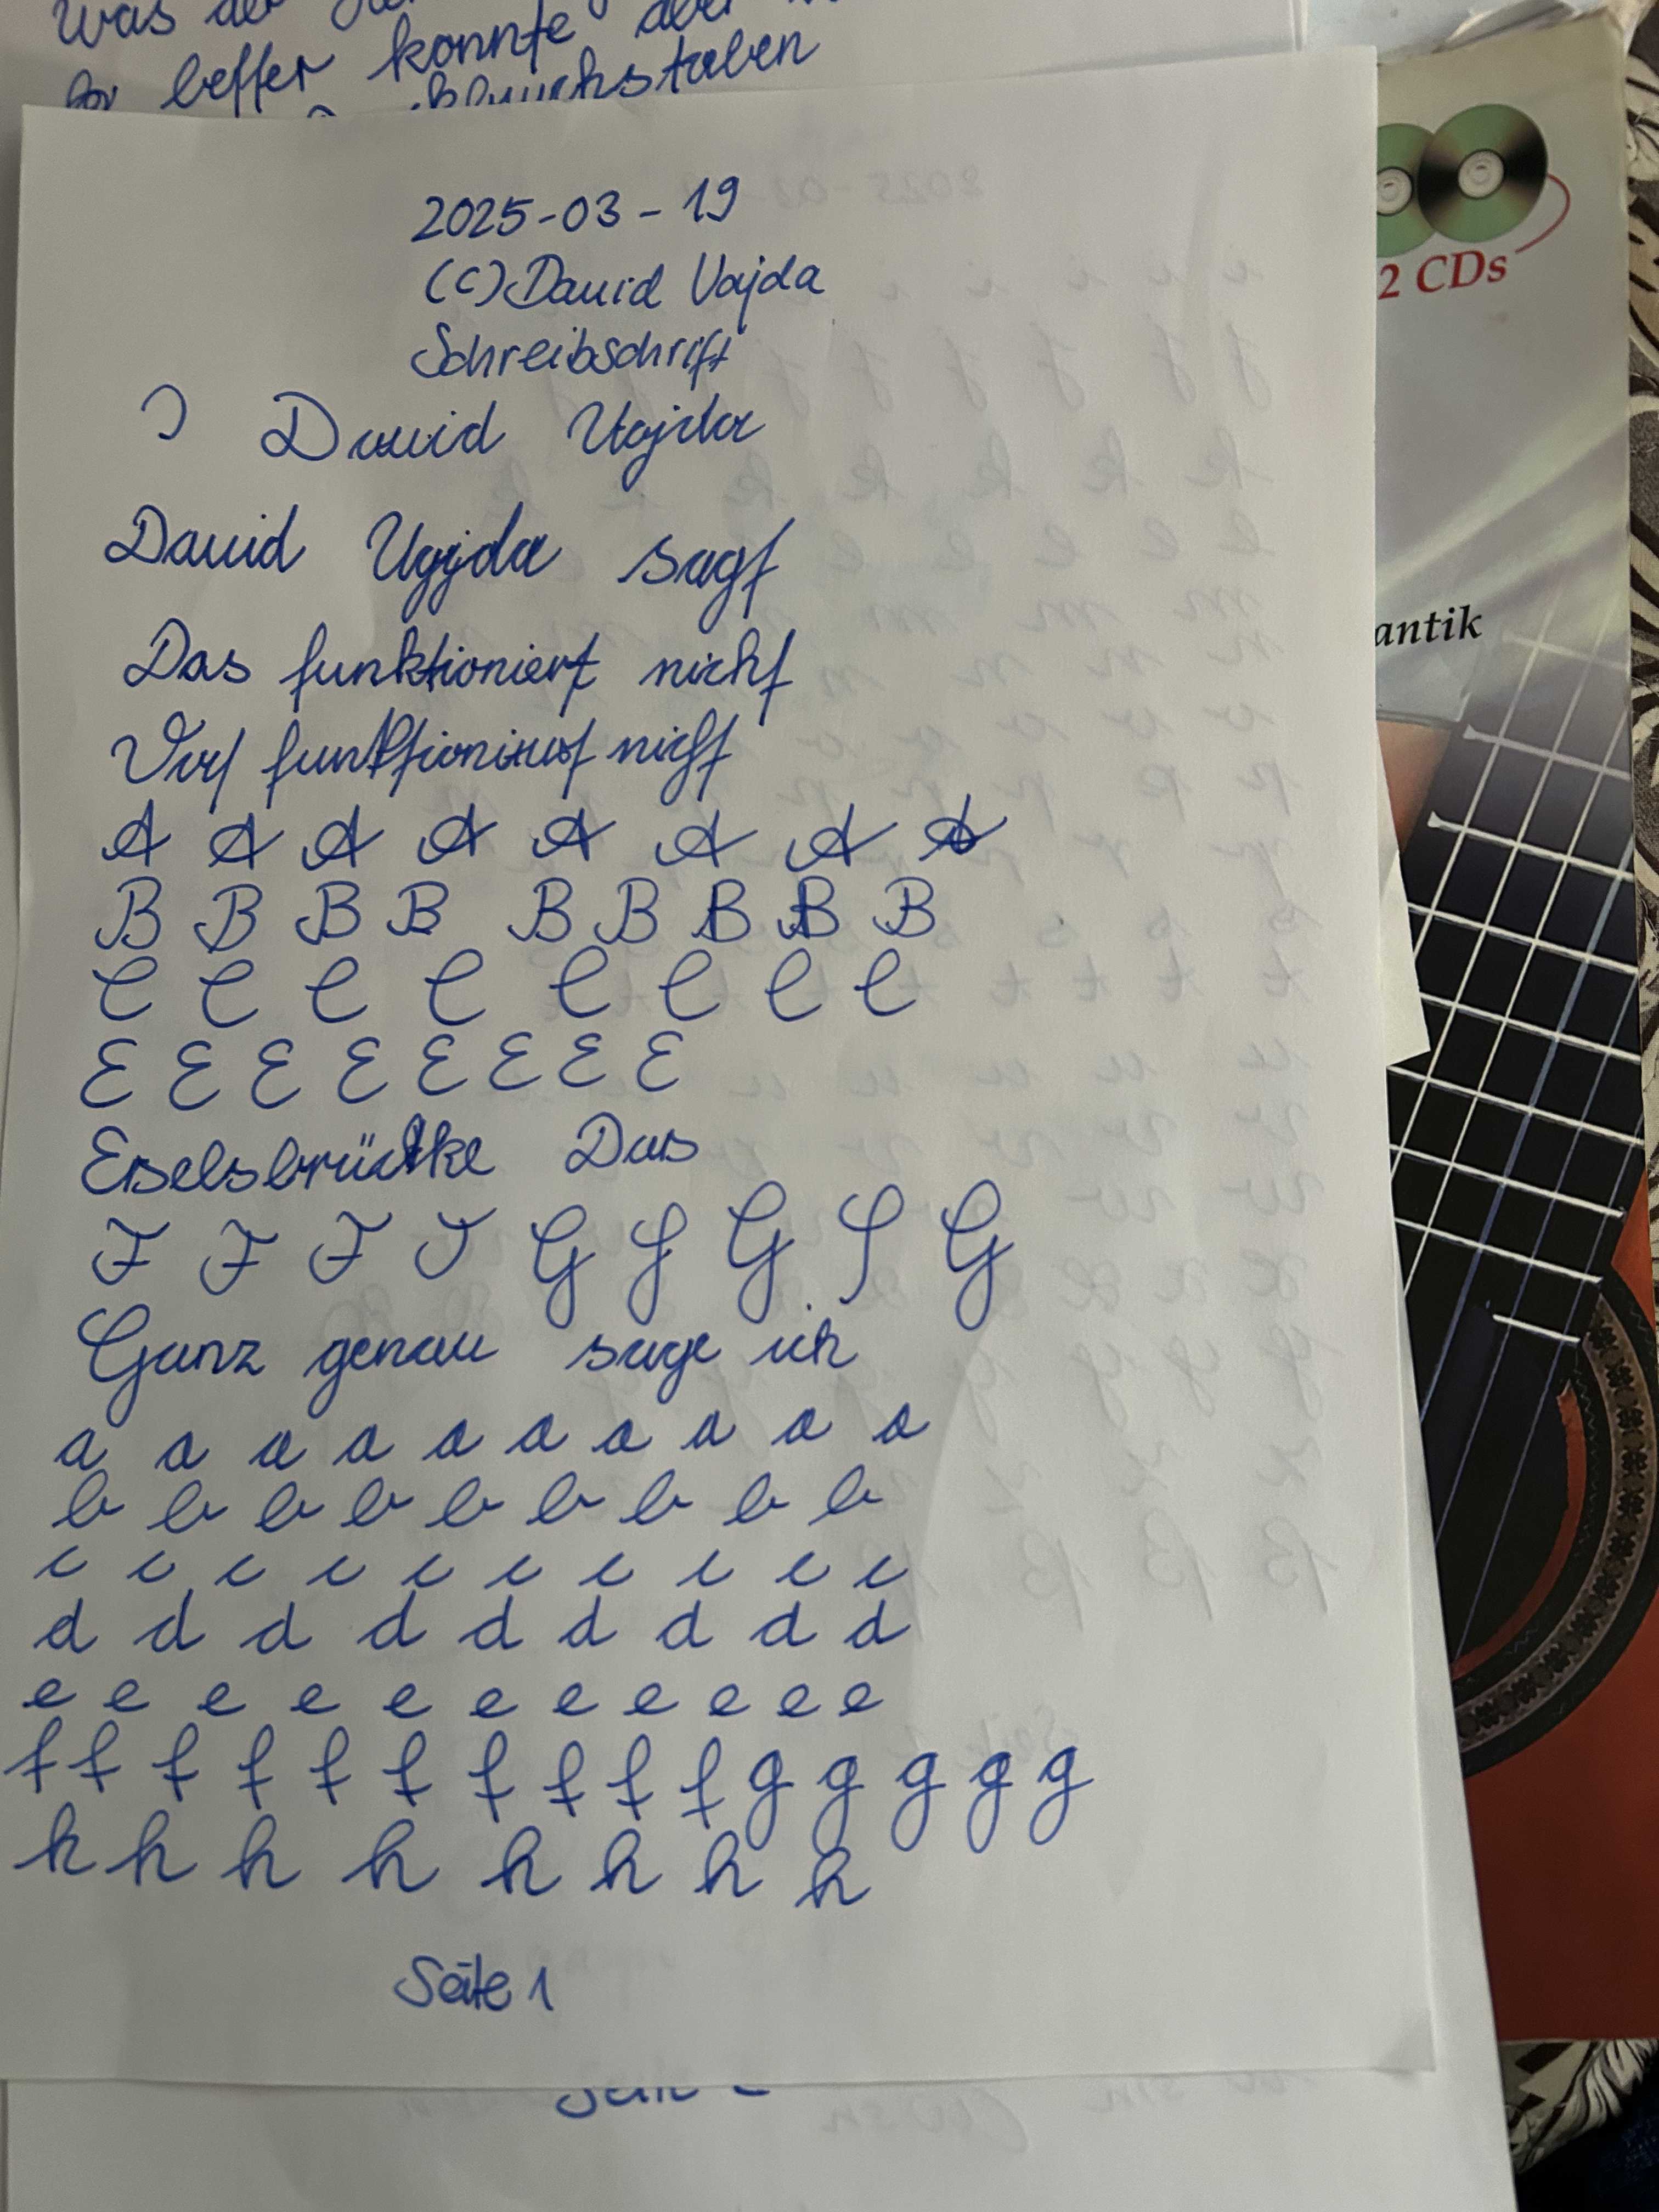 Was der
besser konnte aber
Buchstaben
2025-03-19
(C) David Vajda
Schreibschrift
David Vajda
David Vajda sagt
Das funktioniert nicht
Das funktioniert nicht
A A A A A A A A
B B B B B B B B B
C C C C C C C C
E E E E E E E E
Eselsbrücke Das
F F F F G G G G G
Ganz genau sage ich
a a a a a a a a a a
b b b b b b b b b
c c c c c c c c c c
d d d d d d d d d
e e e e e e e e e e
f f f f f f f f f f g g g g g
h h h h h h h h
Seite 1
2 CDs
antik